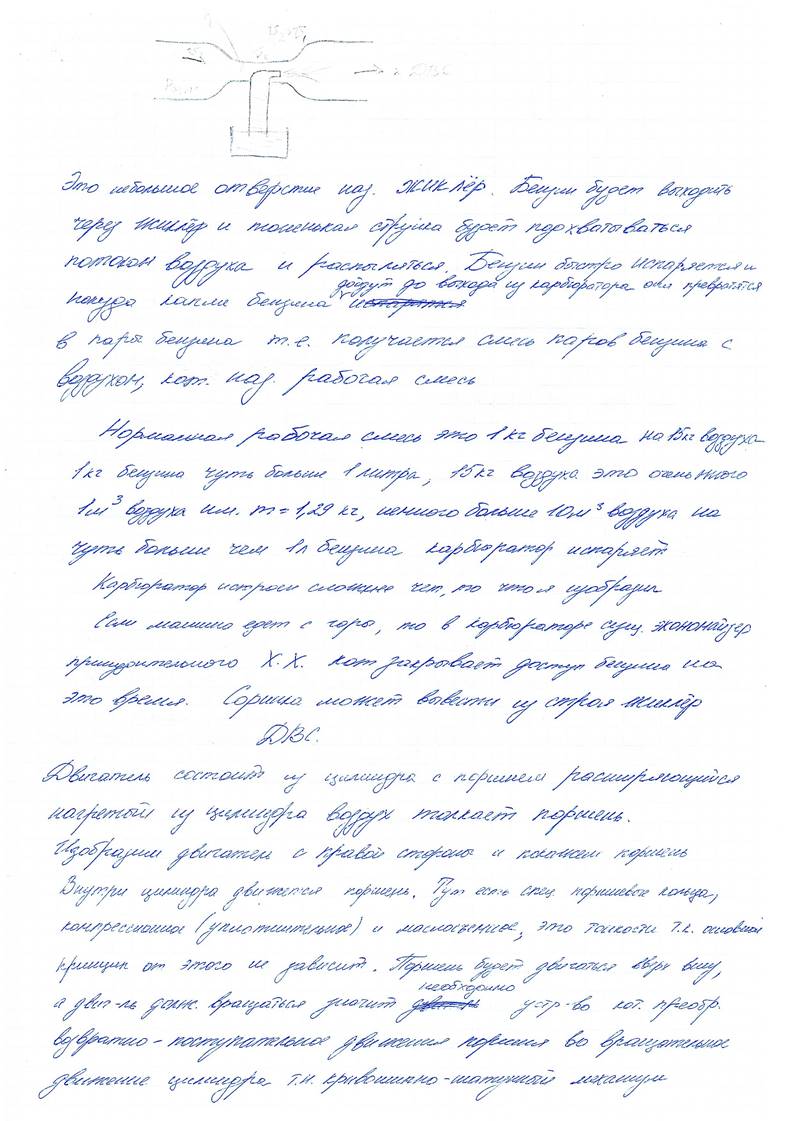 к ДВС
Это небольшое отверстие наз. жиклёр. Бензин будет выходить
через жиклёр и тоненькая струйка будет подхватываться
потоком воздуха и распыляться. Бензин быстро испаряется и
дойдут до выхода из карбюратора они превратятся
покуда капли бензина
в пары бензина т.е. получается смесь паров бензина с
воздухом, кот. наз. рабочая смесь
Нормальная рабочая смесь это 1 кг бензина на 15 кг воздуха
1 кг бензина чуть больше 1 литра, 15 кг воздуха это очень много
1 м³ воздуха им. m = 1,29 кг, немного больше 10 м³ воздуха на
чуть больше чем 1 л бензина карбюратор испаряет
Карбюратор устроен сложнее чем, то что я изобразил
Если машина едет с горы, то в карбюраторе сущ. экономайзер
принудительного Х.Х. кот закрывает доступ бензина на
это время. Соринка может вывести из строя жиклёр
ДВС.
Двигатель состоит из цилиндра с поршнем расширяющийся
нагретый из цилиндра воздух толкает поршень.
Изобразим двигатель с правой стороны и покажем поршень
Внутри цилиндра движется поршень. Тут есть спец. поршневые кольца,
компрессионное (уплотнительное) и маслосъёмное, это тонкости т.к. основной
принцип от этого не зависит. Поршень будет двигаться вверх вниз,
необходимо
а двиг-ль долж. вращаться значит устр-во кот. преобр.
возвратно-поступательное движения поршня во вращательное
движение цилиндра т.н. кривошипно-шатунный механизм